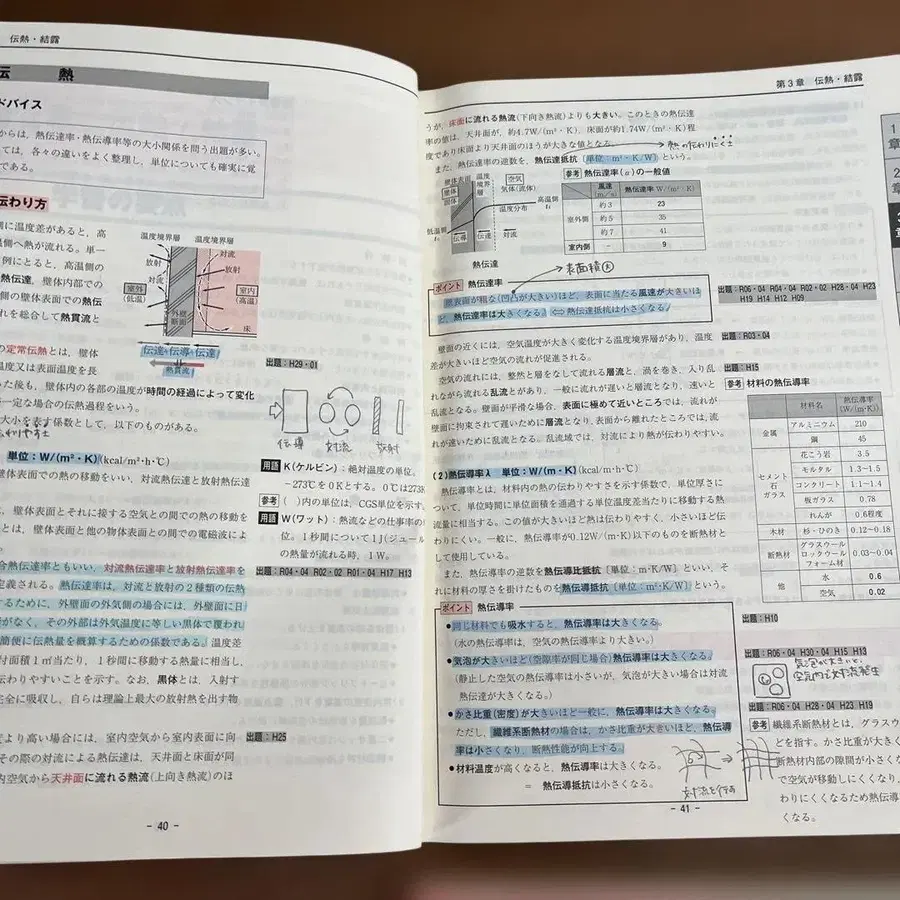 伝熱・結露
伝　熱
ドバイス
からは，熱伝達率・熱伝導率等の大小関係を問う出題が多い。
ては，各々の違いをよく整理し，単位についても確実に覚
である。
伝わり方
側に温度差があると，高
温側へ熱が流れる。単一
例にとると，高温側の
熱伝達，壁体内部での
側の壁体表面での熱伝
れを総合して熱貫流と
温度境界層　温度境界層
対流
放射
対流
放射
室外
(低温)
室内
(高温)
外壁
断面
床
伝達 伝導 伝達
熱貫流
出題：H29・01
の定常伝熱とは，壁体
温度又は表面温度を長
った後も，壁体内の各部の温度が時間の経過によって変化
一定な場合の伝熱過程をいう。
大小を表す係数として，以下のものがある。
伝導　対流　放射
単位：W/(m²・K)(kcal/m²·h·℃)
壁体表面での熱の移動をいい，対流熱伝達と放射熱伝達
，壁体表面とそれに接する空気との間での熱の移動を
とは，壁体表面と他の物体表面との間での電磁波によ
る。
合熱伝達率ともいい，対流熱伝達率と放射熱伝達率を
定義される。熱伝達率は，対流と放射の２種類の伝熱
するために，外壁面の外気側の場合には，外壁面に日
がなく，その外部は外気温度に等しい黒体で覆われ
簡便に伝熱量を概算するための係数である。温度差
付面積１㎡当たり，１秒間に移動する熱量に相当し，
伝わりやすいことを示す。なお，黒体とは，入射す
完全に吸収し，自らは理論上最大の放射熱を出す物
度より高い場合には，室内空気から室内表面に向
その際の対流による熱伝達は，天井面と床面が同
内空気から天井面に流れる熱流(上向き熱流)のほ
用語 K(ケルビン)：絶対温度の単位。
－273℃を０Kとする。0℃は273K
参考 (　)内の単位は，CGS単位を示す
用語 W(ワット)：熱流などの仕事率の単
位。１秒間について１J(ジュール)
の熱量が流れる時，１W。
出題：R04・04 R02・02 R01・04 H17 H13
出題：H25
- 40 -
第３章　伝熱・結露
うが，床面に流れる熱流(下向き熱流)よりも大きい。このときの熱伝達
率の値は，天井面が，約4.7W/(m²・K)，床面が約1.74W/(m²・K)程
度であり床面より天井面のほうが大きな値となる。
熱の伝わりにくさ
また，熱伝達率の逆数を，熱伝達抵抗〔単位：m²・K/W〕という。
壁体表面 温度境界層
空気
気体(流体)
壁体
固体
高温側
温度分布
低温側
伝導 伝達 対流
熱伝達
参考 熱伝達率(α)の一般値
風速(m/s)　熱伝達率 W/(m²・K)
室外側　約３　23
約５　35
約７　41
室内側　－　9
ポイント 熱伝達率
表面積 大
壁表面が粗な(凹凸が大きい)ほど，表面に当たる風速が大きいほ
ど，熱伝達率は大きくなる。⇔熱伝達抵抗は小さくなる
出題：R06・04 R04・04 R02・02 H28・04 H23
H19 H14 H12 H09
壁面の近くには，空気温度が大きく変化する温度境界層があり，温度
差が大きいほど空気の流れが促進される。
出題：R03・04
空気の流れには，整然と層をなして流れる層流と，渦を巻き，入り乱
れながら流れる乱流とがあり，一般に流れが遅いと層流となり，速いと
乱流となる。壁面が平滑な場合，表面に極めて近いところでは，流れが
壁面に拘束されて遅いために層流となり，表面から離れたところでは，流
れが速いために乱流となる。乱流域では，対流により熱が伝わりやすい。
出題：H15
(２)熱伝導率λ　単位：W/(m・K)(kcal/m·h·℃)
熱伝導率とは，材料内の熱の伝わりやすさを示す係数で，単位厚さに
ついて，単位時間に単位面積を通過する単位温度差当たりに移動する熱
流量に相当する。この値が大きいほど熱は伝わりやすく，小さいほど伝
わりにくい。一般に，熱伝導率が0.12W/(m・K)以下のものを断熱材と
して使用している。
また，熱伝導率の逆数を熱伝導比抵抗〔単位：m・K/W〕といい，そ
れに材料の厚さを掛けたものを熱伝導抵抗〔単位：m²・K/W〕という。
参考 材料の熱伝導率
材料名　熱伝導率(W/(m・K))
金属　アルミニウム　210
鋼　45
セメント 石 ガラス　花こう岩　3.5
モルタル　1.3~1.5
コンクリート　1.1~1.4
板ガラス　0.78
れんが　0.6程度
木材　杉・ひのき　0.12~0.18
断熱材　グラスウール ロックウール フォーム材　0.03~0.04
他　水　0.6
空気　0.02
ポイント 熱伝導率
●同じ材料でも吸水すると，熱伝導率は大きくなる。
(水の熱伝導率は，空気の熱伝導率より大きい。)
●気泡が大きいほど(空隙率が同じ場合)熱伝導率は大きくなる。
(静止した空気の熱伝導率は小さいが，気泡が大きい場合は対流
熱伝達が大きくなる。)
●かさ比重(密度)が大きいほど一般に，熱伝導率は大きくなる。
ただし，繊維系断熱材の場合は，かさ比重が大きいほど，熱伝導
率は小さくなり，断熱性能が向上する。
●材料温度が高くなると，熱伝導率は大きくなる。
＝　熱伝導抵抗は小さくなる。
出題：H10
出題：R06・04 H30・04 H15 H13
気泡が大きいと，
空気内で対流発生
出題：R06・04 H28・04 H23 H19
参考 繊維系断熱材とは，グラスウ
どを指す。かさ比重が大きく
断熱材内部の隙間が小さく
で空気が移動しにくくなり，
わりにくくなるため熱伝導
くなる。
- 41 -
1
章
2
章